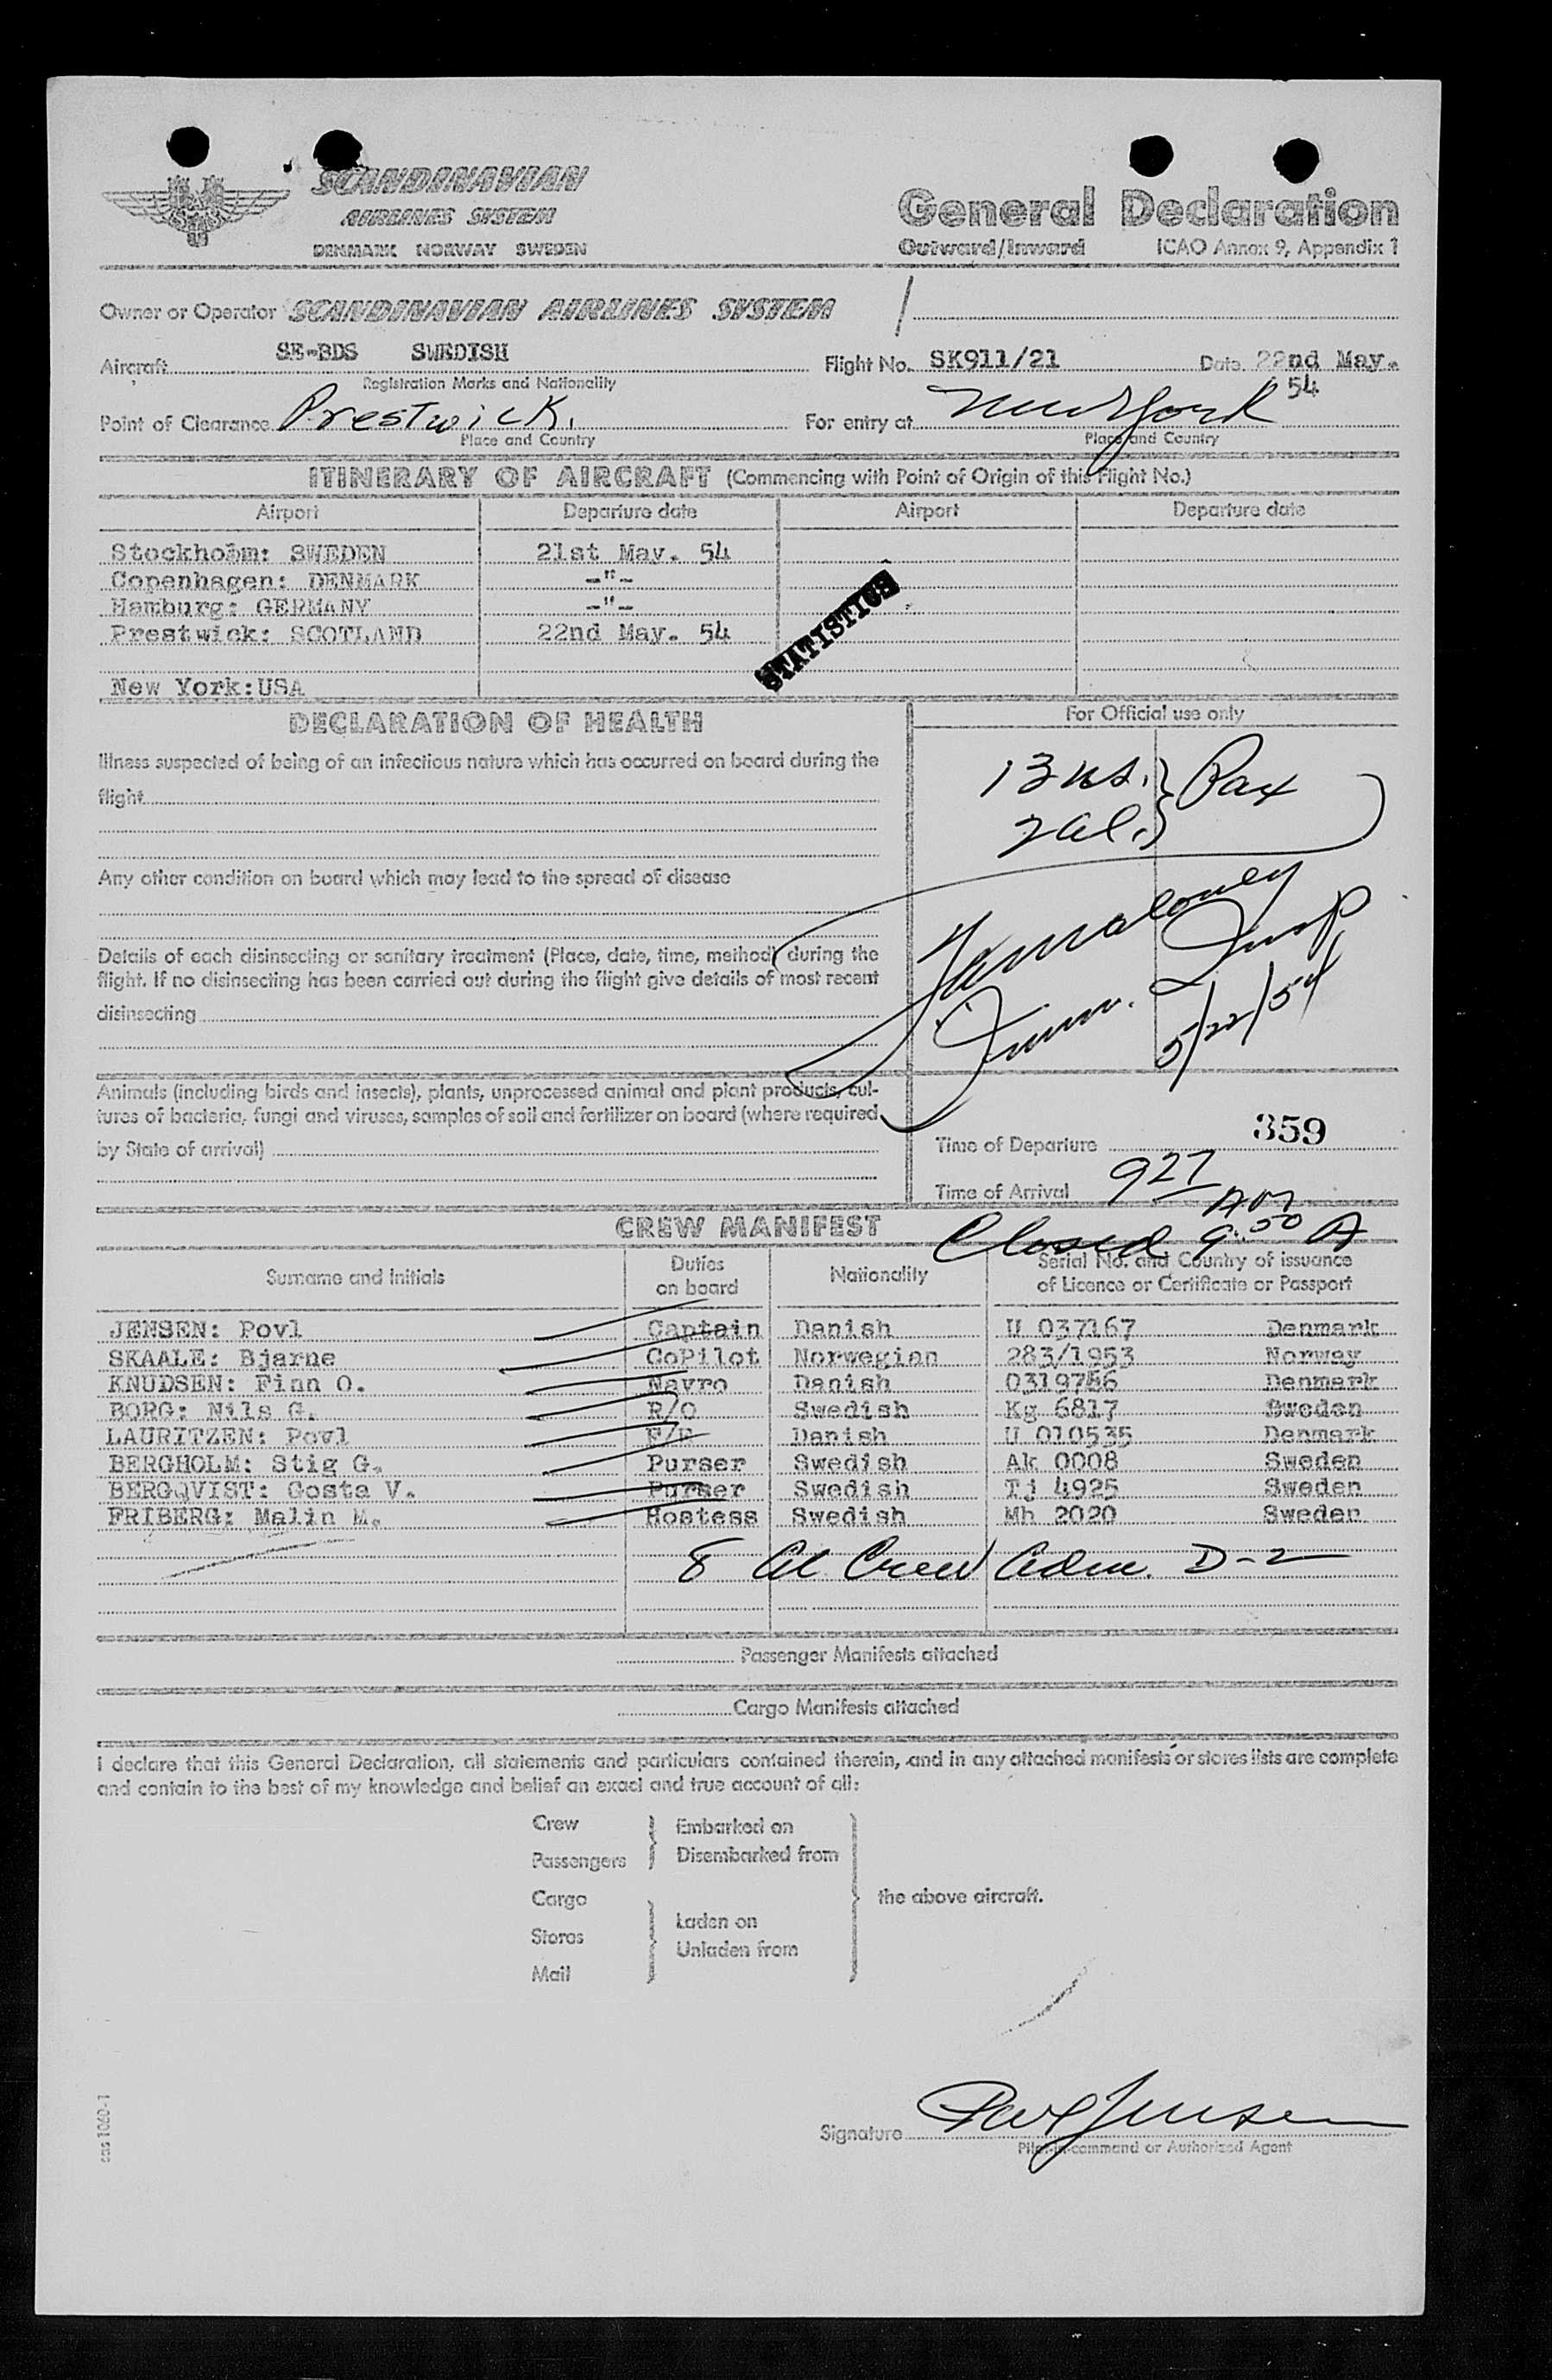 SCANDINAVIAN
AIRLINES SYSTEM
DENMARK NORWAY SWEDEN
General Declaration
Outward/Inward ICAO Annex 9, Appendix 1
Owner or Operator SCANDINAVIAN AIRLINES SYSTEM
Aircraft SE-BDS SWEDISH Flight No. SK911/21 Date 22nd May. 54
Registration Marks and Nationality
Point of Clearance Prestwick. For entry at New York
Place and Country Place and Country
ITINERARY OF AIRCRAFT (Commencing with Point of Origin of this Flight No.)
Airport Departure date Airport Departure date
Stockholm: SWEDEN 21st May. 54
Copenhagen: DENMARK -"-
Hamburg: GERMANY -"-
Prestwick: SCOTLAND 22nd May. 54
STATISTICS
New York:USA
DECLARATION OF HEALTH
Illness suspected of being of an infectious nature which has occurred on board during the
flight
Any other condition on board which may lead to the spread of disease
Details of each disinsecting or sanitary treatment (Place, date, time, method) during the
flight. If no disinsecting has been carried out during the flight give details of most recent
disinsecting
Animals (including birds and insects), plants, unprocessed animal and plant products, cul-
tures of bacteria, fungi and viruses, samples of soil and fertilizer on board (where required
by State of arrival)
For Official use only
13 us. } Pax
2 al. }
Maloney
Imm. Insp
5/22/54
359
Time of Departure
Time of Arrival 927 AM
Closed 9:50 A
CREW MANIFEST
Surname and Initials Duties on board Nationality Serial No. and Country of issuance of Licence or Certificate or Passport
JENSEN: Povl Captain Danish U 037167 Denmark
SKAALE: Bjarne CoPilot Norwegian 283/1953 Norway
KNUDSEN: Finn O. Navro Danish 0319786 Denmark
BORG: Nils G. R/O Swedish Kg 6817 Sweden
LAURITZEN: Povl F/E Danish U 010535 Denmark
BERGHOLM: Stig G. Purser Swedish Ak 0008 Sweden
BERGQVIST: Gosta V. Purser Swedish Tj 4925 Sweden
FRIBERG: Malin M. Hostess Swedish Mh 2020 Sweden
8 al Crew adm. D-2
Passenger Manifests attached
Cargo Manifests attached
I declare that this General Declaration, all statements and particulars contained therein, and in any attached manifests or stores lists are complete
and contain to the best of my knowledge and belief an exact and true account of all:
Crew Embarked on
Passengers Disembarked from
Cargo the above aircraft.
Stores Laden on
Unladen from
Mail
Signature Povl Jensen
Pilot-in-command or Authorized Agent
sas 1060-1